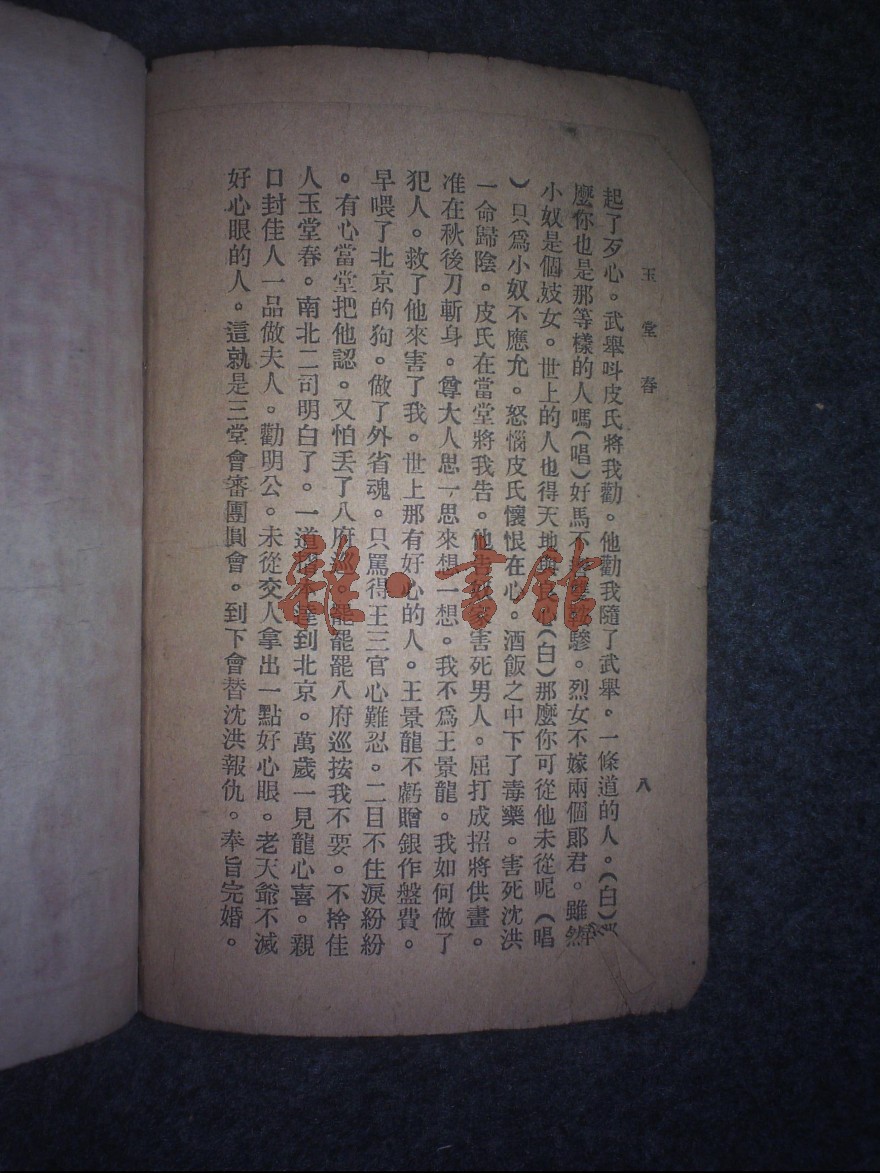 玉堂春
八
起了歹心。武舉呌皮氏將我勸。他勸我隨了武舉。一條道的人。(白)
麼你也是那等樣的人嗎(唱)好馬不雙驂。烈女不嫁兩個郎君。雖然
小奴是個妓女。世上的人也得天地與良心(白)那麼你可從他未從呢(唱
)只爲小奴不應允。怒惱皮氏懷恨在心。酒飯之中下了毒藥。害死沈洪
一命歸陰。皮氏在當堂將我告。他告奴家害死男人。屈打成招將供畫。
准在秋後刀斬身。尊大人思一思來想一想。我不爲王景龍。我如何做了
犯人。救了他來害了我。世上那有好心的人。王景龍不虧贈銀作盤費。
早喂了北京的狗。做了外省魂。只罵得王三官心難忍。二目不住淚紛紛
。有心當堂把他認。又怕丟了八府巡。罷罷罷八府巡按我不要。不捨佳
人玉堂春。南北二司明白了。一道本達到北京。萬歲一見龍心喜。親
口封佳人一品做夫人。勸明公。未從交人拿出一點好心眼。老天爺不滅
好心眼的人。這就是三堂會審團圓會。到下會替沈洪報仇。奉旨完婚。
雅·書館